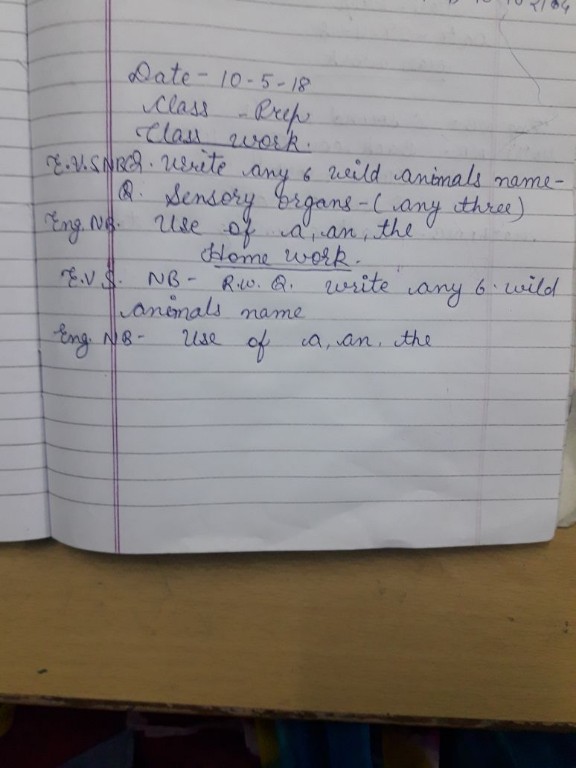 Date - 10-5-18
Class - Prep
Class work.
E.V.S NB Q. Write any 6 wild animals name-
Q. Sensory organs - (any three)
Eng. NB. Use of a, an, the
Home work.
E.V.S. NB - R.W. Q. write any 6 wild
animals name
Eng. NB - Use of a, an, the